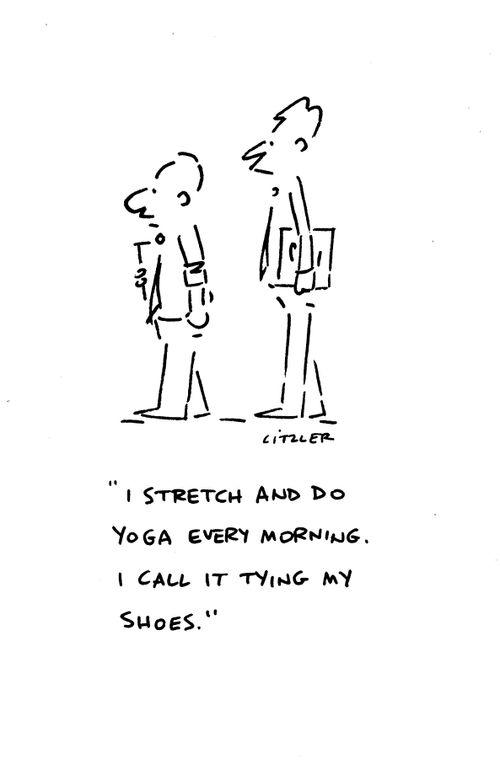 LITZLER
"I STRETCH AND DO
YOGA EVERY MORNING.
I CALL IT TYING MY
SHOES."